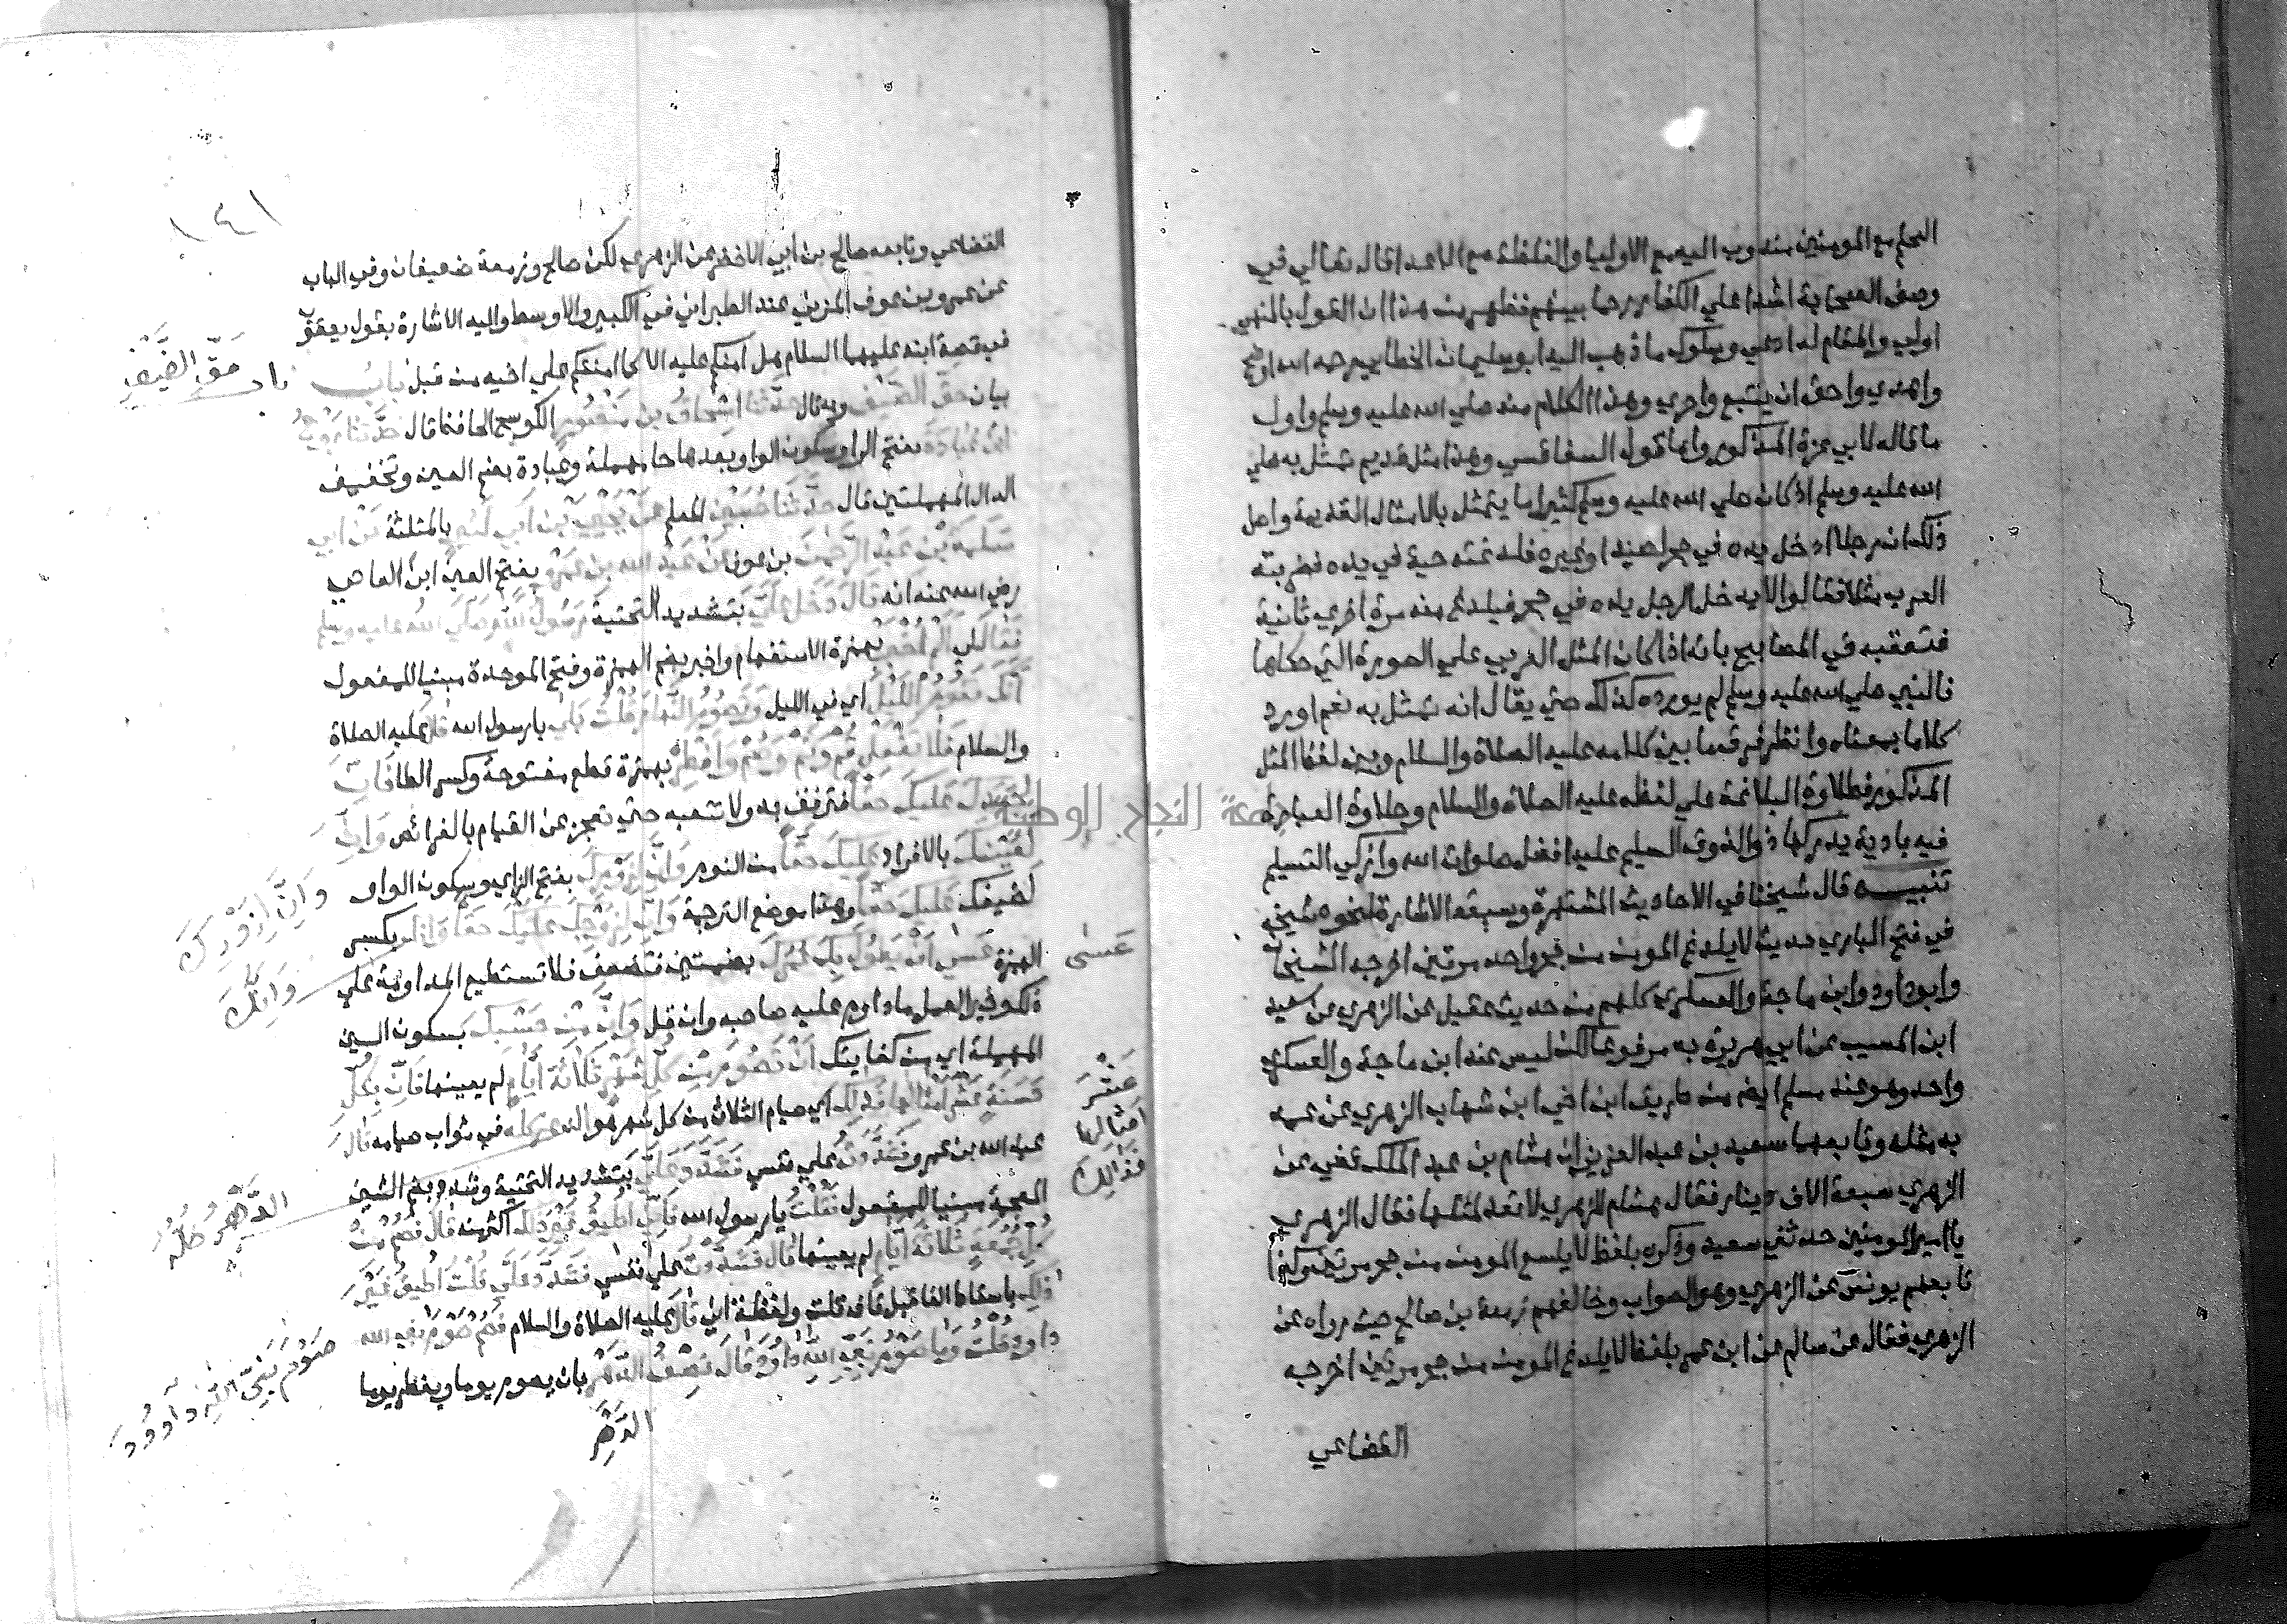 الحلم مع المومنين مندوب اليه مع الاوليا والغلظة مع الاعدا قال تعالي في
وصف الصحابة اشدا علي الكفار رحما بينهم فظهر من هذا ان القول بالنهي
اولي والمقام له ادعي وسلوك ما ذهب اليه ابو سليمان الخطابي رحمه الله اوضح
واهدي واحق ان يتبع واحري وهذا الكلام منه صلي الله عليه وسلم واول
ما قاله لابي عزة المذكور واما قول السفاقسي وهذا مثل قديم تمثل به صلي
الله عليه وسلم اذ كان صلي الله عليه وسلم كثيرا ما يتمثل بالامثال القديمة واصل
ذلك ان رجلا ادخل يده في جحر لصيد او غيره فلدغته حية في يده فضربته
العرب مثلا فقالوا لا يدخل الرجل يده في جحر فيلدغ منه مرة اخري ثانية
فتعقبه في المصابيح بانه اذا كان المثل العربي علي الصورة التي حكاها
فالنبي صلي الله عليه وسلم لم يورده كذلك حتي يقال انه تمثل به نعم اورد
كلاما بمعناه وانظر فرق ما بين كلامه عليه الصلاة والسلام وبين لفظ المثل
المذكور فطلاوة البلاغة علي لفظه عليه الصلاة والسلام وحلاوة العبارة
فيه بادية يدركها ذو الذوق السليم عليه افضل صلوات الله وازكي التسليم
تنبيه قال شيخنا في الاحاديث المشتهرة وسبقه الاشارة لنحوه شيخه
في فتح الباري حديث لا يلدغ المومن من جحر واحد مرتين اخرجه الشيخان
وابو داود وابن ماجة والعسكري كلهم من حديث عقيل عن الزهري عن سعيد
ابن المسيب عن ابي هريرة به مرفوعا لكن ليس عند ابن ماجة والعسكري
واحد وهو عند مسلم ايضا من طريق ابن اخي ابن شهاب الزهري عن عمه
به مثله وتابعهما سعيد بن عبد العزيز ان هشام بن عبد الملك قضي عن
الزهري سبعة الاف دينار فقال هشام للزهري لا تعد لمثلها فقال الزهري
يا امير المومنين حدثني سعيد وذكره بلفظ لا يلسع المومن من جحر مرتين وكذا
تابعهم يونس عن الزهري وهو الصواب وخالفهم زمعة بن صالح حيث رواه عن
الزهري فقال عن سالم عن ابن عمر بلفظ لا يلدغ المومن من جحر مرتين اخرجه
القضاعي
١٤١
القضاعي وتابعه صالح بن ابي الاخضر عن الزهري لكن صالح وزمعة ضعيفان وفي الباب
عن عمرو بن عوف المزني عند الطبراني في الكبير والاوسط واليه الاشارة بقول يعقوب
في قصة ابنه عليهما السلام هل امنكم عليه الا كما امنتكم علي اخيه من قبل باب
باب حق الضيف
بيان حق الضيف وبه قال حدثنا اسحاق بن منصور الكوسج الحافظ قال حدثنا روح
ابن عبادة بفتح الرا وسكون الواو بعدها حا مهملة وعبادة بضم العين وتخفيف
الدال المهملتين قال حدثنا حسين المعلم عن يحيي بن ابي كثير بالمثلثة عن ابي
سلمة بن عبد الرحمن بن عوف عن عبد الله بن عمرو بفتح العين ابن العاصي
رضي الله عنه انه قال دخل علي بتشديد التحتية رسول الله صلي الله عليه وسلم
فقال لي الم اخبر بهمزة الاستفهام واخبر بضم الهمزة وفتح الموحدة مبنيا للمفعول
انك تقوم الليل اي في الليل وتصوم النهار قلت بلي يا رسول الله قال عليه الصلاة
والسلام فلا تفعل قم ونم وصم وافطر بهمزة قطع مفتوحة وكسر الطا فان
لجسدك عليك حقا فترفق به ولا تتعبه حتي تعجز عن القيام بالفرائض وان
لعينك بالافراد عليك حقا من النوم وان لزورك بفتح الزاي وسكون الواو
وان لزورك
لضيفك عليك حقا وهذا موضع الترجمة وان لزوجك عليك حقا وانك بكسر
وانك
الهمزة عسي ان يطول بك عمرك بضمتين فتضعف فلا تستطيع المداومة علي
عسى
ذلك وخير العمل ما داوم عليه صاحبه وان قل وان من حسبك بسكون السين
المهملة اي من كفايتك ان تصوم من كل شهر ثلاثة ايام لم يعينها فان بكل
حسنة عشر امثالها فذلك اي صيام الثلاث من كل شهر هو الدهر كله في ثواب صيامه قال
عشر
امثالها
فذلك
الدهر كله
عبد الله بن عمرو فشددت علي نفسي فشدد علي بتشديد التحتية وشدد بضم الشين
المعجمة مبنيا للمفعول فقلت يا رسول الله فاني اطيق غير ذلك اكثر منه قال فصم من
كل جمعة ثلاثة ايام لم يعينها قال فشددت علي نفسي فشدد علي قلت اطيق غير
ذلك باسقاط الفا قبل قاف قلت ولفظة اني قال عليه الصلاة والسلام فصم صوم نبي الله
داود قلت وما صوم نبي الله داود قال نصف الدهر بان يصوم يوما ويفطر يوما
صوم نبي الله داود
الدهر
جامعة النجاح الوطنية